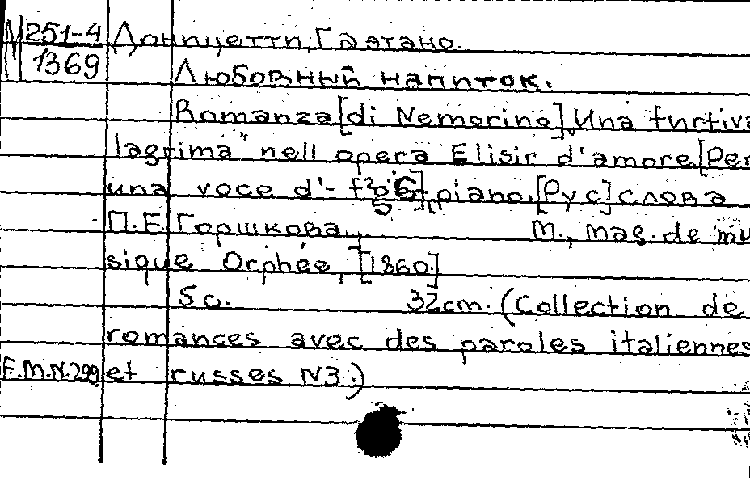 М 251-4 Доницетти, Гаэтано.
1369 Любовный напиток.
Romanza [di Nemorino] „Una furtiva
lagrima" nell opera Elisir d'amore. [Per
una voce d'- piano. [Рус] слова
П.Е. Горшкова.. М., mag. de mu
sique Orphée, [1860]
5 с. 32 cm. (Collection de
romances avec des paroles italiennes
F.M.N.299 et russes N3.)